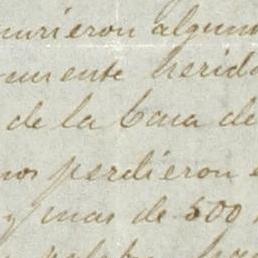 murieron algun
mente herid
de la Casa de
nos perdieron
y mas de 500